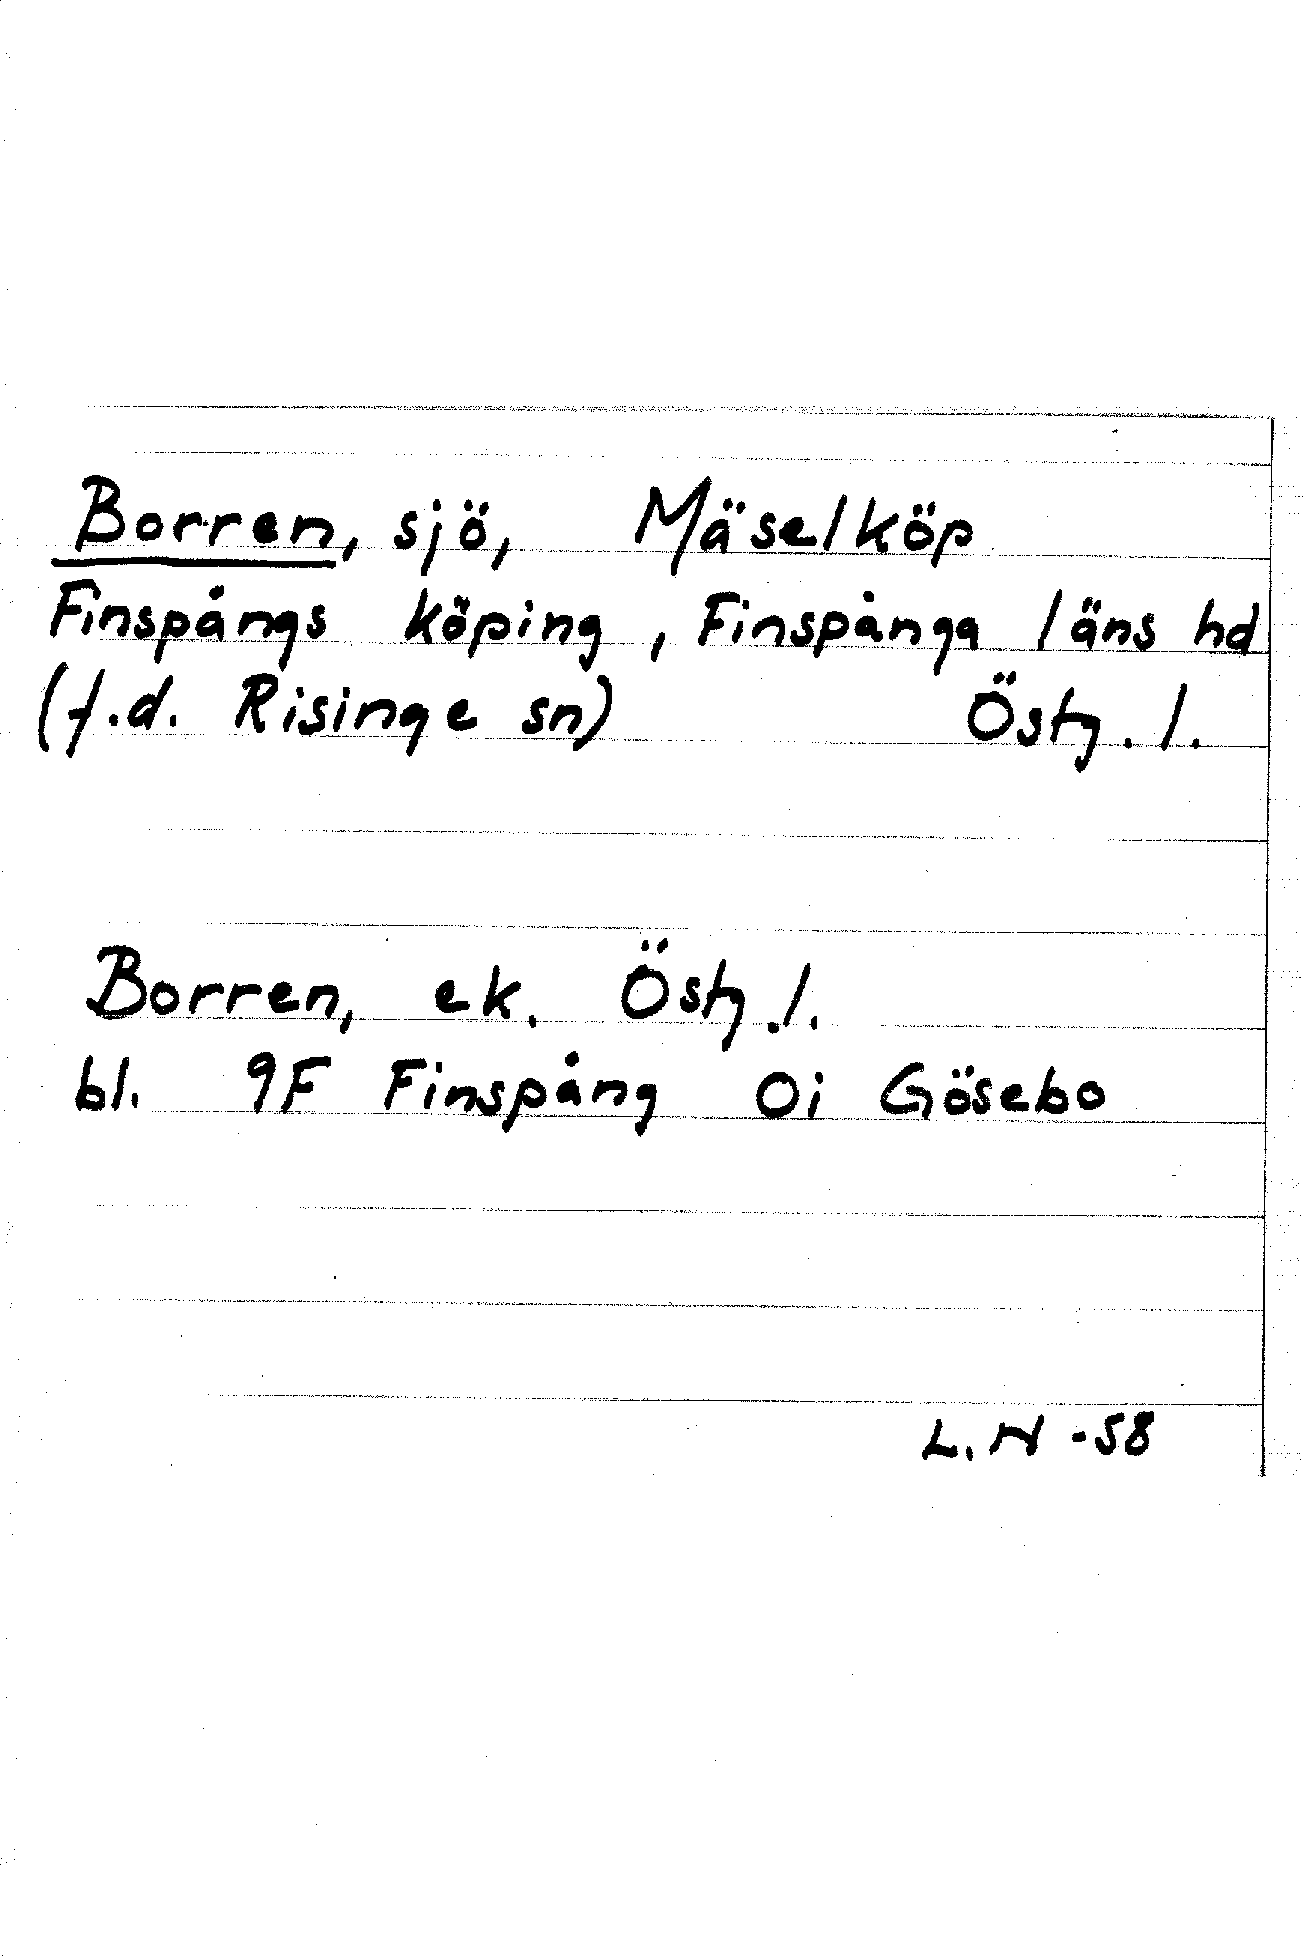 Borren, sjö, Mäselköp
Finspångs köping, Finspånga läns hd
(f.d. Risinge sn) Östg. l.
Borren, ek. Östg. l.
bl. 9F Finspång 0i Gösebo
L. N -58